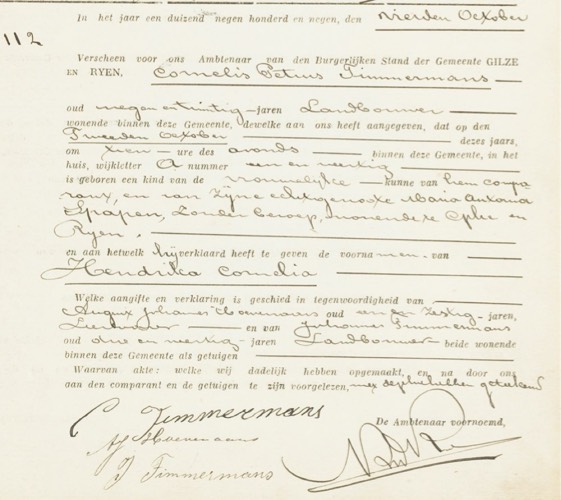 In het jaar een duizend negen honderd en negen, den vierden October
112
Verscheen voor ons Ambtenaar van den Burgerlijken Stand der Gemeente GILZE
EN RYEN, Cornelis Petrus Timmermans
oud negen en twintig jaren Landbouwer
wonende binnen deze Gemeente, dewelke aan ons heeft aangegeven, dat op den
Tweeden October dezes jaars,
om tien ure des avonds binnen deze Gemeente, in het
huis, wijkletter A nummer een en veertig
is geboren een kind van de vrouwelijke kunne van hem compa
rant, en van zijne echtgenoote Maria Antonia
Spapen, zonder beroep, wonende te Gilze en
Ryen,
en aan hetwelk hij verklaard heeft te geven de voornamen van
Hendrika Cornelia
Welke aangifte en verklaring is geschied in tegenwoordigheid van
Johannes Hoevenaars oud een en zestig jaren,
en van Timmermans
oud drie en veertig jaren Landbouwer beide wonende
binnen deze Gemeente als getuigen
Waarvan akte: welke wij dadelijk hebben opgemaakt, en na door ons
aan den comparant en de getuigen te zijn voorgelezen, met dezelve hebben geteekend
De Ambtenaar voornoemd,
C Timmermans
AJ Hoevenaars
J Timmermans